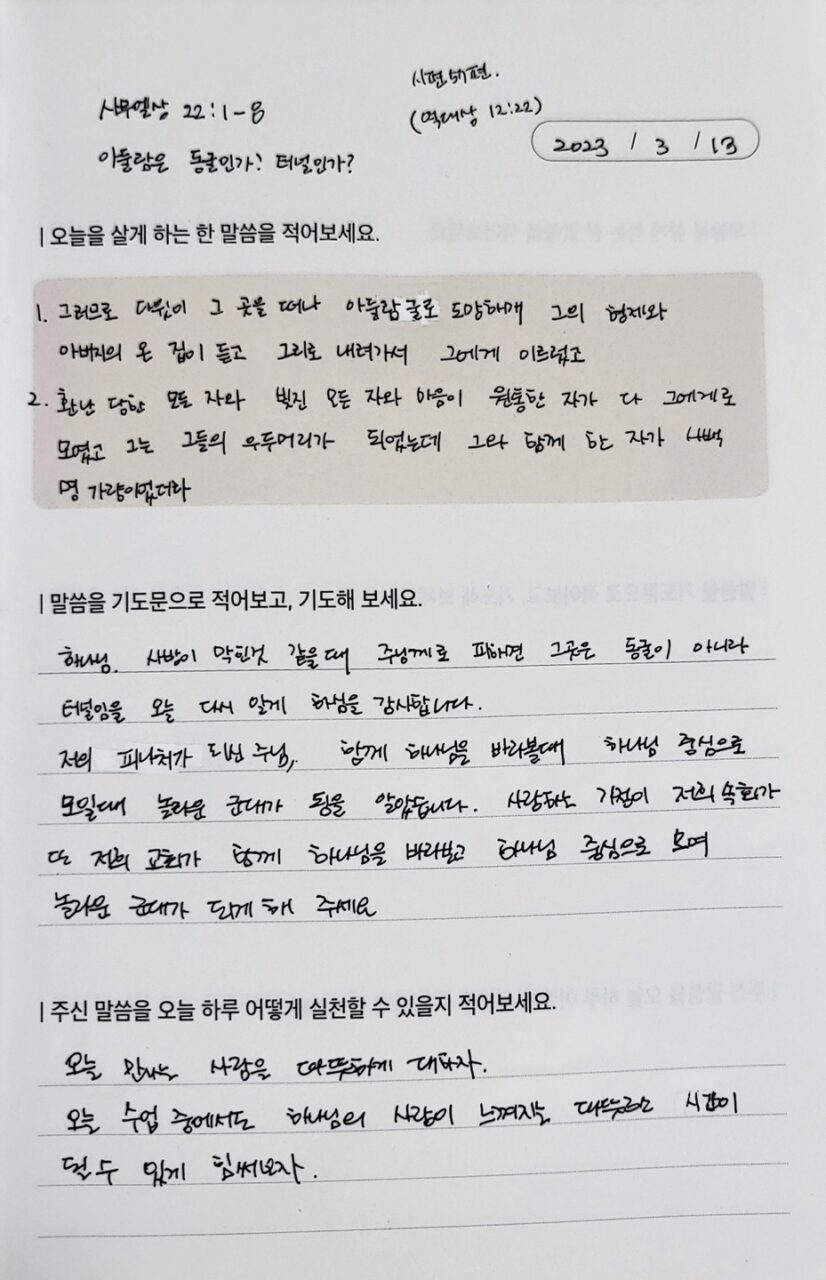 시편 57편.
사무엘상 22:1-8
(역대상 12:22)
2023 / 3 / 13
아둘람은 동굴인가? 터널인가?
| 오늘을 살게 하는 한 말씀을 적어보세요.
1. 그러므로 다윗이 그 곳을 떠나 아둘람 굴로 도망하매 그의 형제와
아버지의 온 집이 듣고 그리로 내려가서 그에게 이르렀고
2. 환난 당한 모든 자와 빚진 모든 자와 마음이 원통한 자가 다 그에게로
모였고 그는 그들의 우두머리가 되었는데 그와 함께 한 자가 사백
명 가량이었더라
| 말씀을 기도문으로 적어보고, 기도해 보세요.
하나님. 사방이 막힌것 같을때 주님께로 피하면 그곳은 동굴이 아니라
터널임을 오늘 다시 알게 하심을 감사합니다.
저의 피난처가 되신 주님, 함께 하나님을 바라볼때 하나님 중심으로
모일때 놀라운 군대가 됨을 알았습니다. 사랑하는 가정이 저희 속회가
또 저희 교회가 함께 하나님을 바라보고 하나님 중심으로 모여
놀라운 군대가 되게 해 주세요
| 주신 말씀을 오늘 하루 어떻게 실천할 수 있을지 적어보세요.
오늘 만나는 사람을 따뜻하게 대하자.
오늘 수업 중에서도 하나님의 사랑이 느껴지는 따뜻한 시간이
될 수 있게 힘써보자.